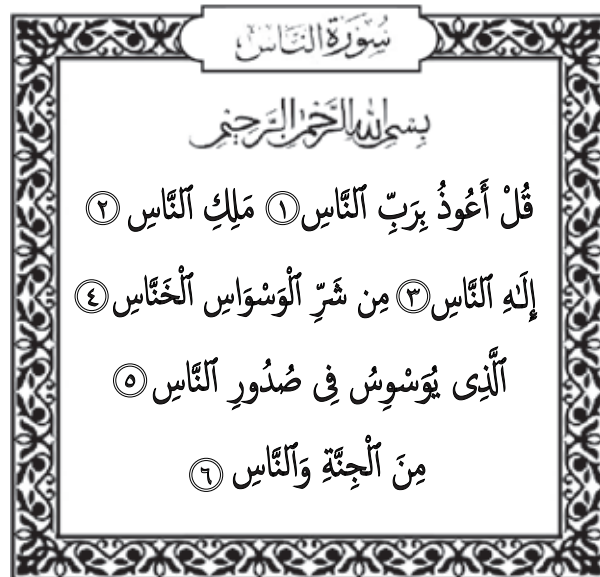 سُورَةُ النَّاسِ
بِسْمِ اللَّهِ الرَّحْمَٰنِ الرَّحِيمِ
قُلْ أَعُوذُ بِرَبِّ ٱلنَّاسِ ١ مَلِكِ ٱلنَّاسِ ٢
إِلَٰهِ ٱلنَّاسِ ٣ مِن شَرِّ ٱلْوَسْوَاسِ ٱلْخَنَّاسِ ٤
ٱلَّذِى يُوَسْوِسُ فِى صُدُورِ ٱلنَّاسِ ٥
مِنَ ٱلْجِنَّةِ وَٱلنَّاسِ ٦